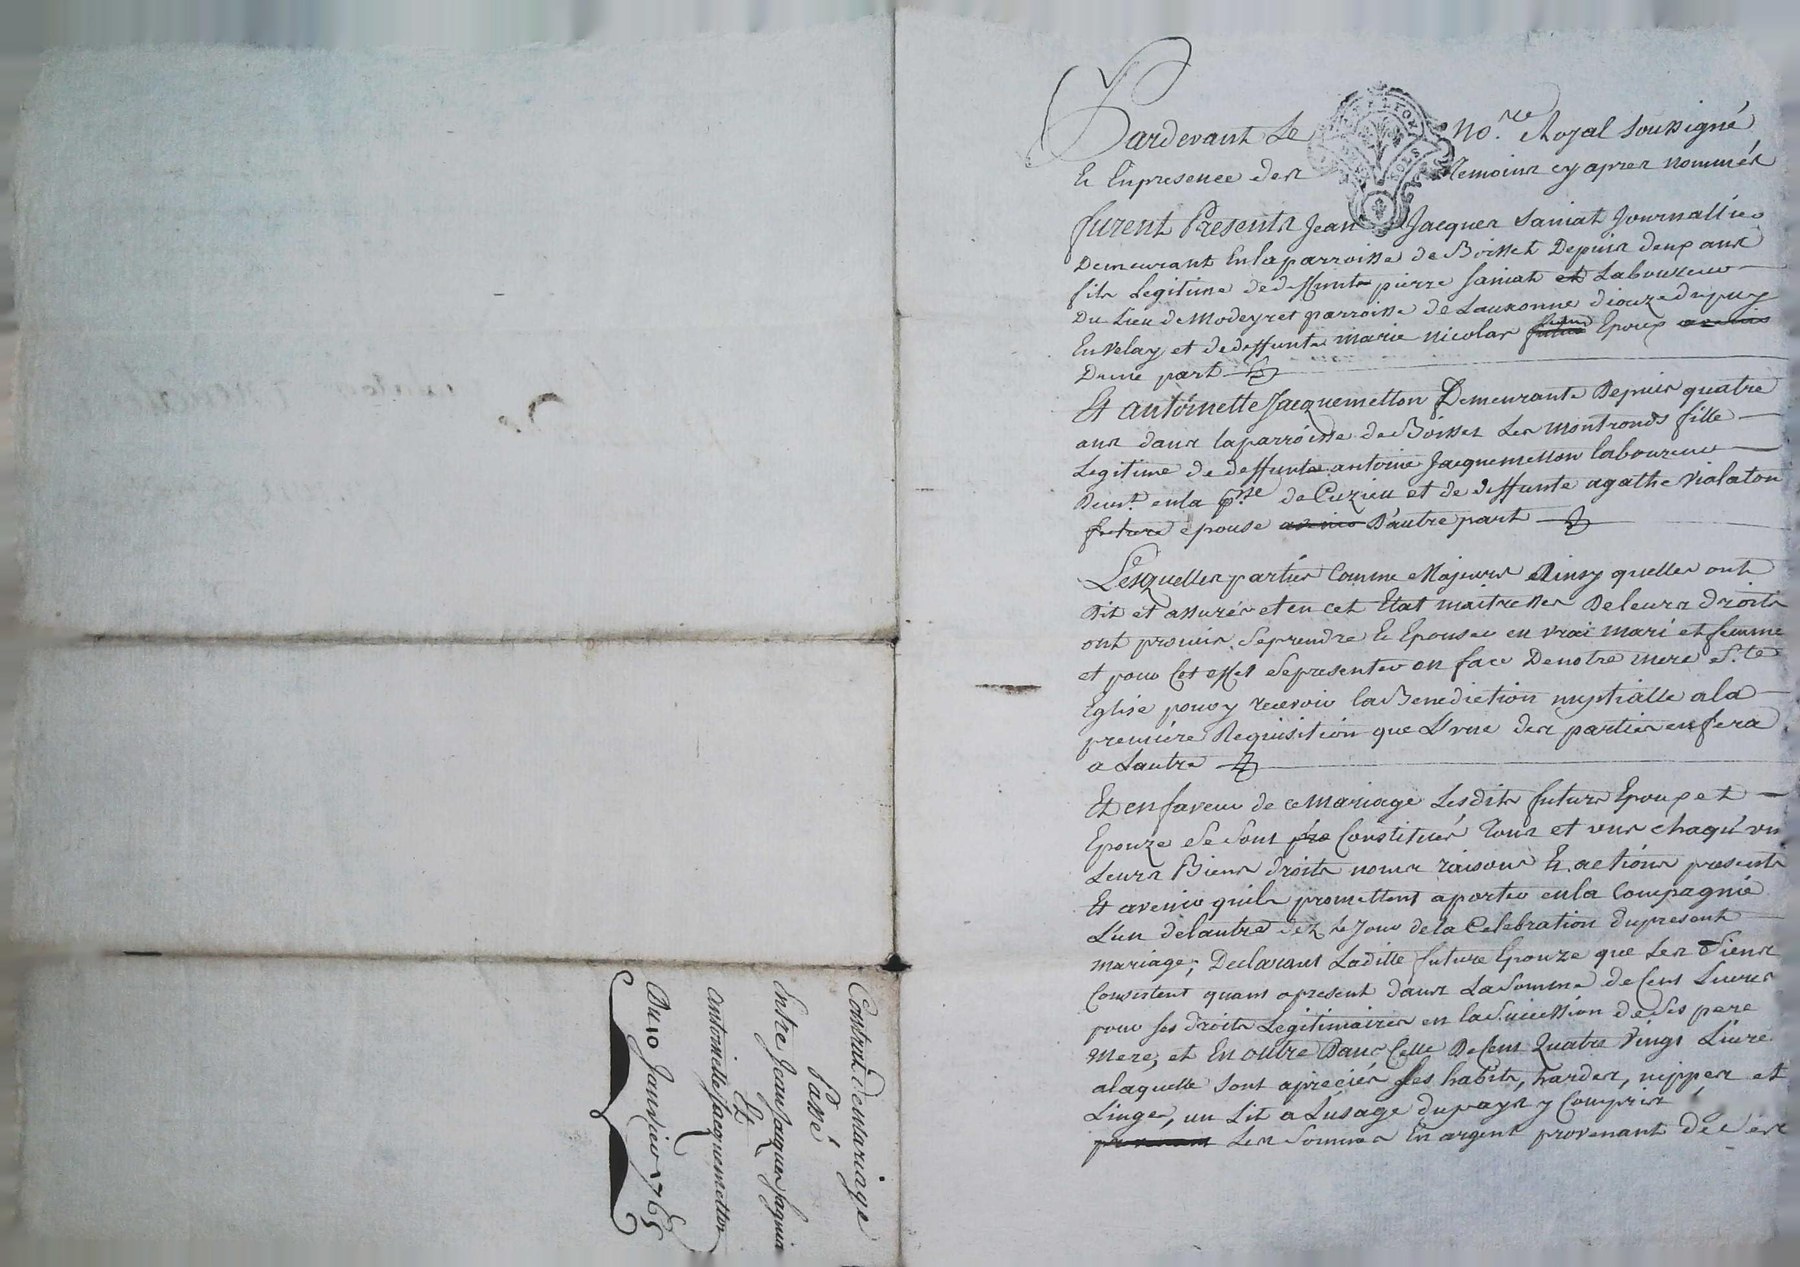 Pardevant Le No.re Royal soussigné
Et Enpresence des Temoins cy apres nommés
furent Presents Jean Jacques Saniat Journallier
Demeurant En la parroisse de Boisset Depuis deux ans
fils Legitime de deffunts pierre Saniat et Laboureur
Du Lieu de Modeyret parroisse de Lauzonne diouze dupuy
En Velay et de deffunte marie nicolas futur Epoux avenir
Dune part
Et antoinette Jacquemetton Demeurante Depuis quatre
ans dans la parroisse de Boisset Les montronds fille
Legitime de deffunts antoine Jacquemetton laboureur
Demt. en la p.sse de Cuzieu et de deffunte agathe Violaton
future épouse avenir D'autre part
Lesquelles parties Comme Majeurs Ainsy quelles ont
Dit et assurés et en cet Etat maitresses De leurs droits
ont promis Se prendre Et Epouser en vrai mari et femme
et pour Cet effet Se presenter en face De notre mere S.te
Eglise pour y recevoir la Benediction nuptialle a la
premiere Requisition que L'une des parties en fera
a Lautre
Et en faveur de ce Mariage Lesdits futurs Epoux et
Epouze Se Sont Constitués Tous et uns chaqu'un
Leurs Biens droits noms raisons Et actions presents
Et avenir quils promettent aporter en la Compagnie
L'un de lautre dez le Jour de la Celebration du present
mariage; Declarant Laditte future Epouze que Ses Biens
Consistent quant a present dans La Somme de Cent Livres
pour ses droits Legitimaires en la Sucession de Ses pere
Mere; et En outre Dans Celle De Cent Quatre Vingt Livre
a laquelle sont apreciés Ses habits, hardes, nippes et
Linges, un Lit a Lusage du pays y Compris
Les Sommes En argent provenant de Ses
Contrat de mariage
Passé
Entre Jean Jaques Sagnia
Et
Antoinette Jacquemetton
Du 10 Janvier 1765